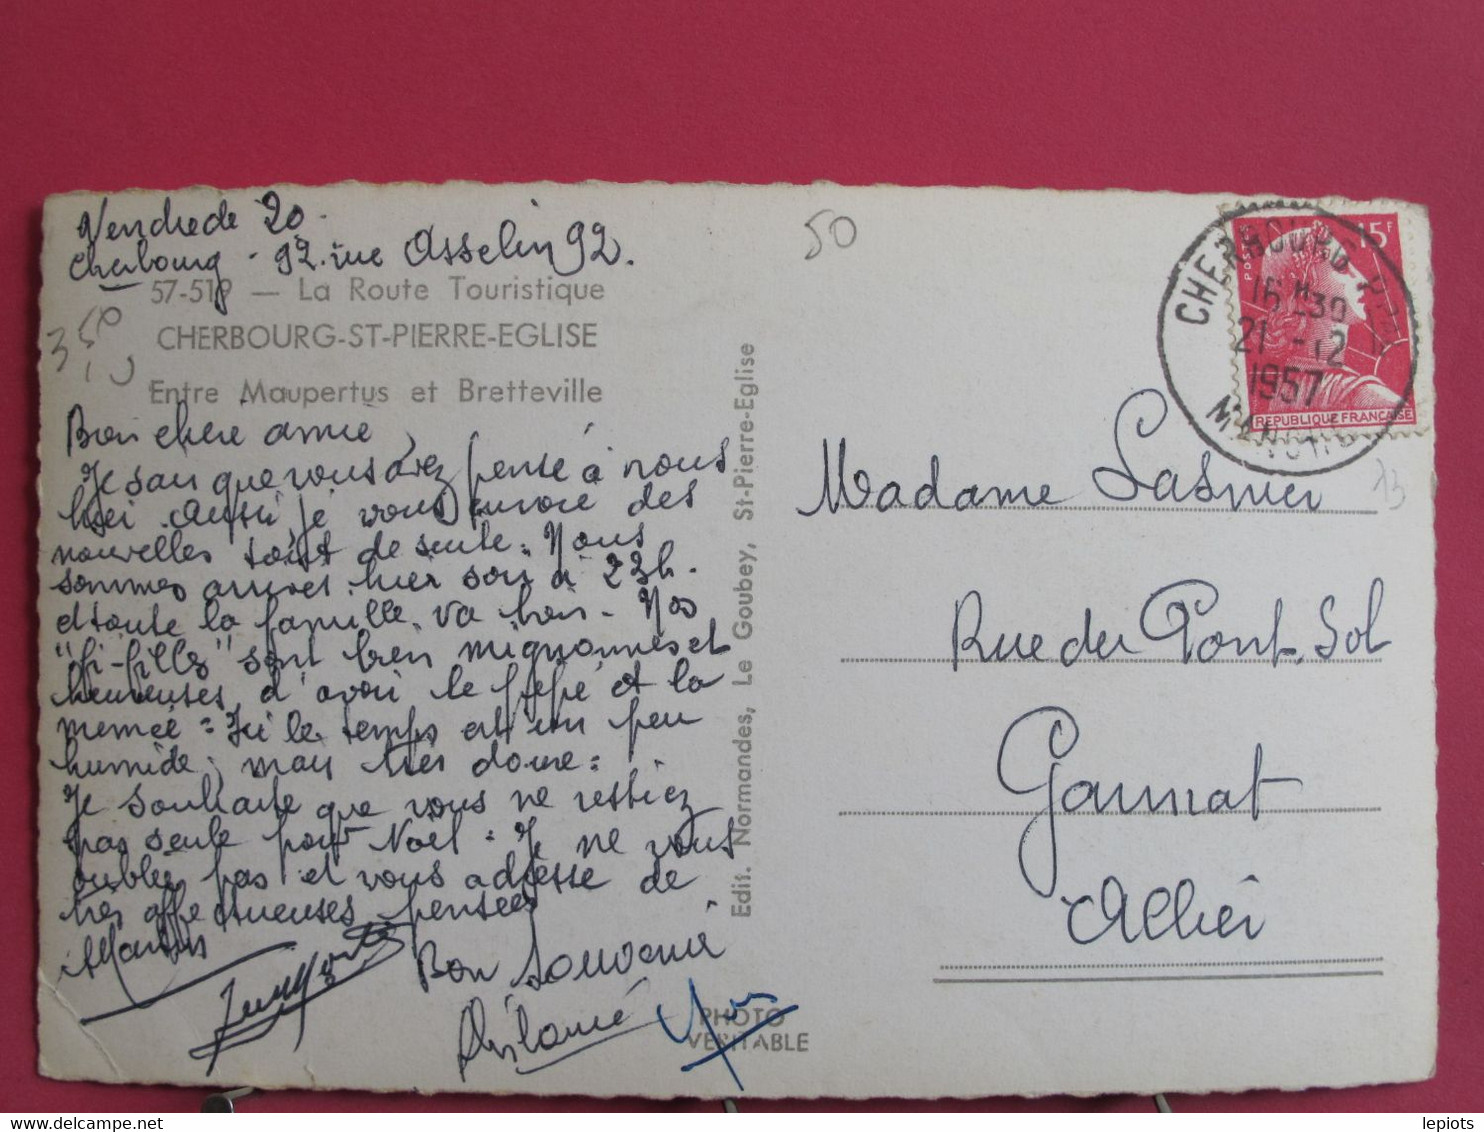 Vendredi 20.
Cherbourg - 92. rue Asselin 92.
57-519 — La Route Touristique
CHERBOURG-ST-PIERRE-EGLISE
Entre Maupertus et Bretteville
Bien chère amie,
Je sais que vous avez pensé à nous
hier. Aussi je vous envoie des
nouvelles tout de suite. Nous
sommes arrivés hier soir à 23h.
et toute la famille va bien. Nos
"fi-filles" sont bien mignonnes et
heureuses d'avoir le pépé et la
mémée = Ici le temps est un peu
humide, mais très doux =
Je souhaite que vous ne restiez
pas seule pour Noël = Je ne vous
oublie pas et vous adresse de
très affectueuses pensées
Bon Souvenir
Edit. Normandes, Le Goubey, St-Pierre-Eglise
PHOTO
VERITABLE
50
350
CHERBOURG
15H30
21-12
1957
MANCHE
15F
REPUBLIQUE FRANCAISE
13
Madame Lasnier
Rue du Pont. Sol
Gannat
Allier
lepiots